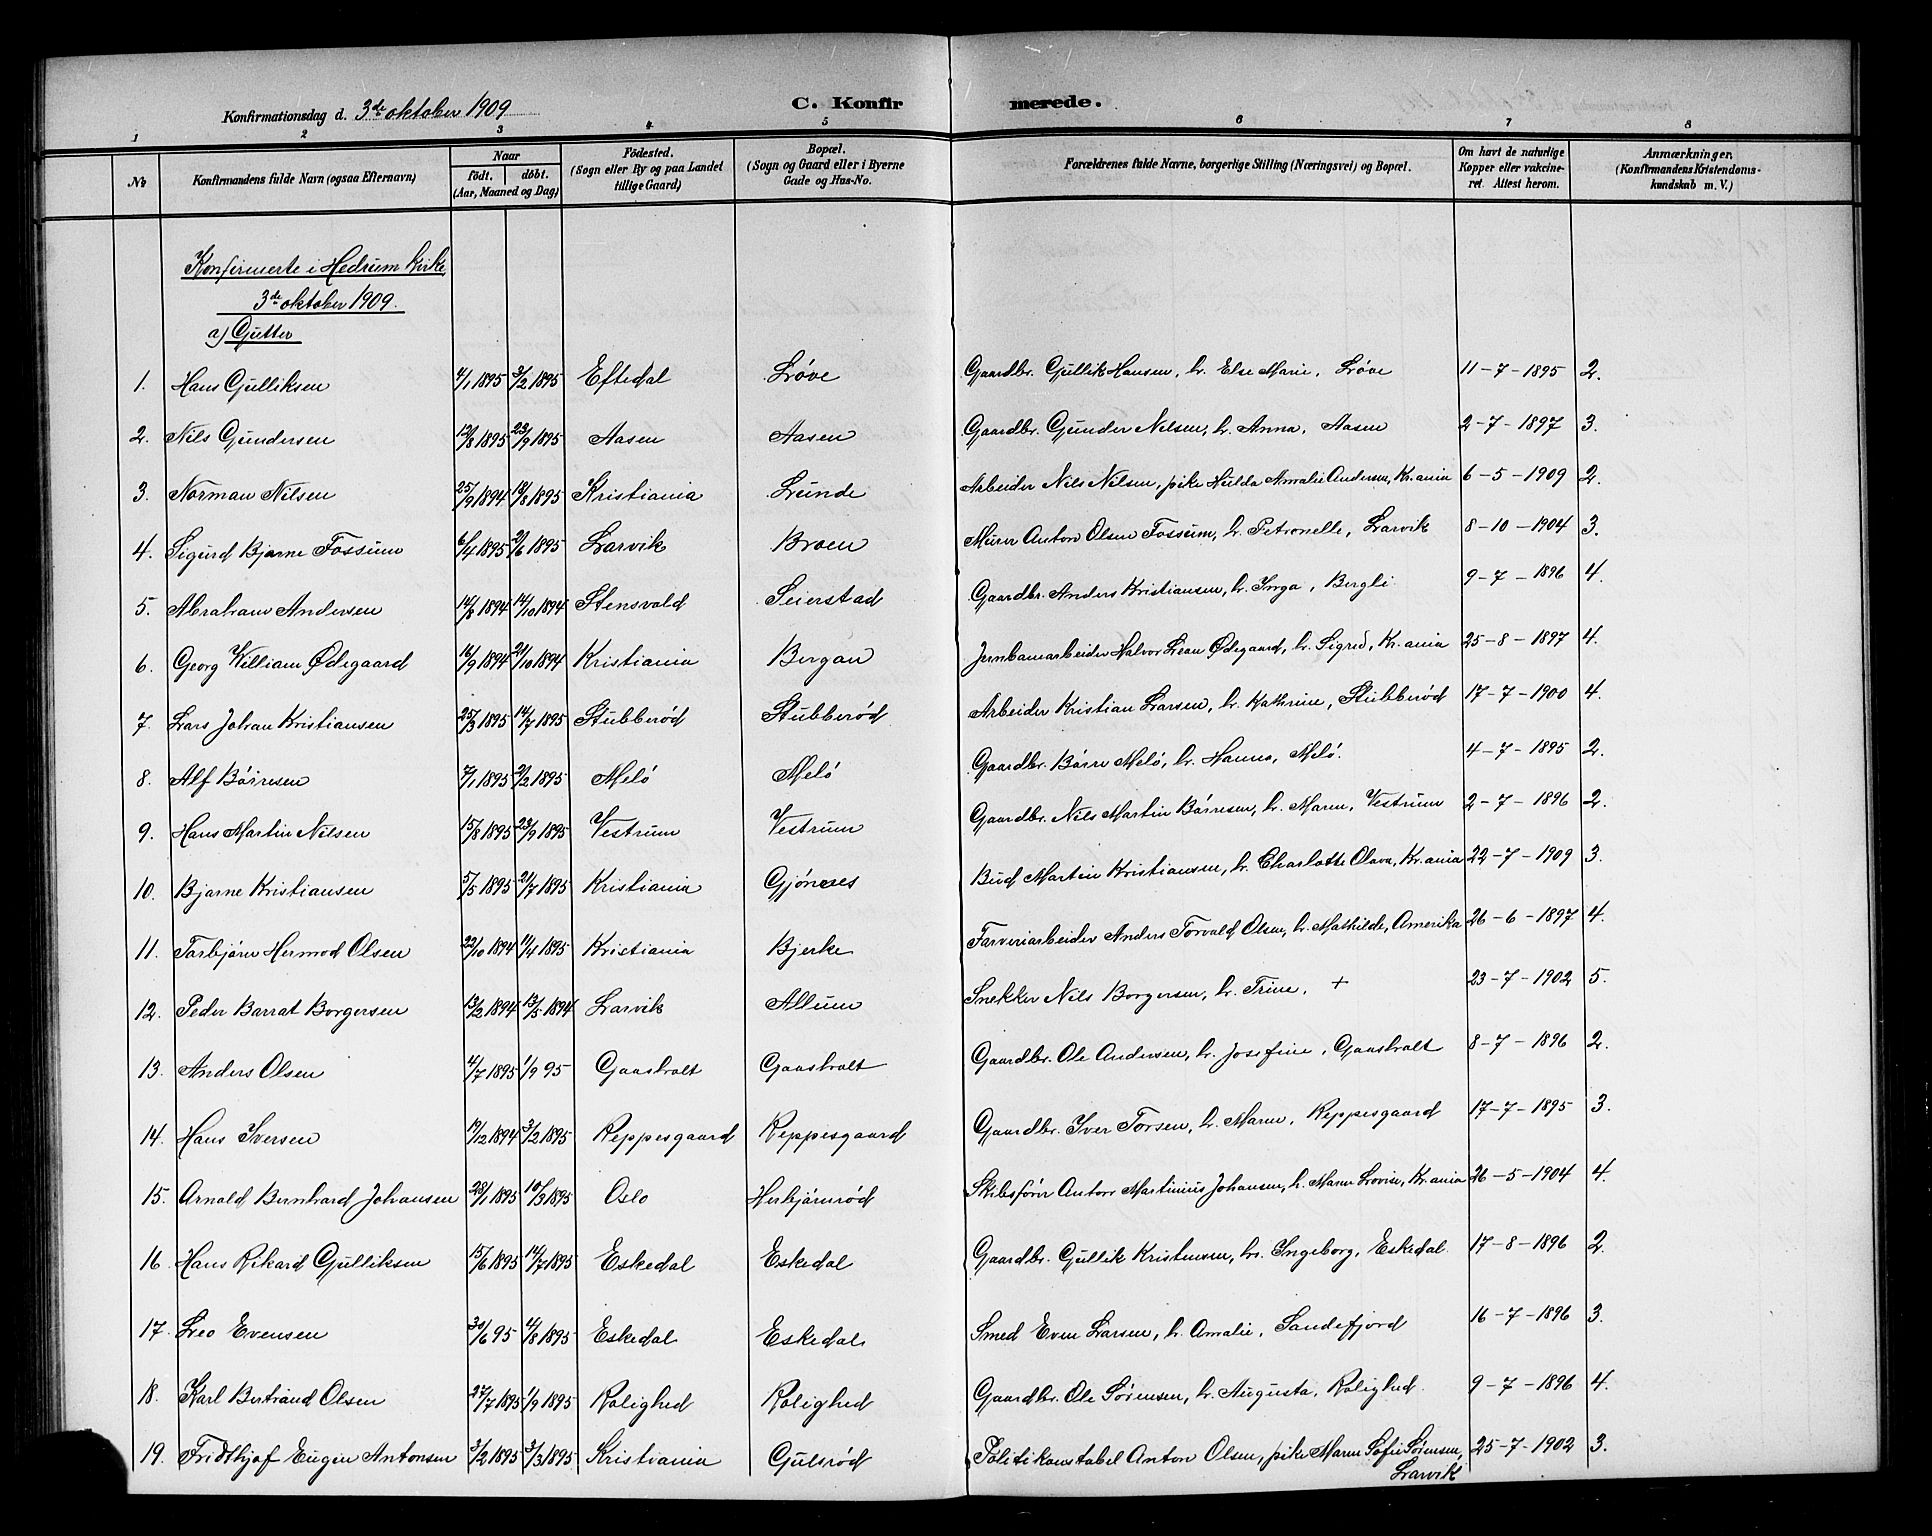 Konfirmationsdag d. 3de oktober 1909
C. Konfirmerede.
1 2 3 4 5 6 7 8
No
Konfirmandens fulde Navn (ogsaa Efternavn)
Naar
födt. döbt.
(Aar, Maaned og Dag)
Födested.
(Sogn eller By og paa Landet
tillige Gaard)
Bopæl.
(Sogn og Gaard eller i Byerne
Gade og Hus-No.
Forældrenes fulde Navne, borgerlige Stilling (Næringsvei) og Bopæl.
Om havt de naturlige
Kopper eller vakcine-
ret. Attest herom.
Anmærkninger.
(Konfirmandens Kristendoms-
kundskab m. V.)
Konfirmerte i Hedrum kirke
3de oktober 1909.
a) Gutter
1. Hans Gulliksen 4/1 1895 3/2 1895 Eftedal Løve Gaardbr. Gullik Hansen, h. Else Marie, Løve 11-7-1895 2.
2. Nils Gundersen 12/8 1895 22/9 1895 Aasen Aasen Gaardbr. Gunder Nilsen, h. Anna, Aasen 2-7-1897 3.
3. Norman Nilsen 25/9 1894 18/8 1895 Kristiania Lunde Arbeider Nils Nilsen, pike Hulda Amalie Andersen, Kr.ania 6-5-1909 2.
4. Sigurd Bjarne Fossum 6/4 1895 2/6 1895 Larvik Broen Murer Anton Olsen Fossum, h. Petronelle, Larvik 8-10-1904 3.
5. Abraham Andersen 14/8 1894 14/10 1894 Stensvald Seierstad Gaardbr. Anders Kristiansen, h. Inga, Bergli 9-7-1896 4.
6. Georg William Ødegaard 16/9 1894 21/10 1894 Kristiania Bergan Jernbanearbeider Halvor Lean Ødegaard, h. Sigrid, Kr.ania 25-8-1897 4.
7. Lars Johan Kristiansen 25/3 1895 14/7 1895 Stubberød Stubberød Arbeider Kristian Larsen, h. Kathrine, Stubberød 17-7-1900 4.
8. Alf Börresen 7/1 1895 2/2 1895 Melö Melö Gaardbr. Börre Melö, h. Hanna, Melö. 4-7-1895 2.
9. Hans Martin Nilsen 15/8 1895 22/9 1895 Vestrum Vestrum Gaardbr. Nils Martin Börresen, h. Maren, Vestrum 2-7-1896 2.
10. Bjarne Kristiansen 5/5 1895 21/7 1895 Kristiania Gjönnes Bud Martin Kristiansen, h. Charlotte Olava, Kr.ania 22-7-1909 3.
11. Torbjörn Hermod Olsen 22/10 1894 11/4 1895 Kristiania Bjerke Farveriarbeider Anders Torvald Olsen, h. Mathilde, Amerika 26-6-1897 4.
12. Peder Barrat Borgersen 13/2 1894 13/5 1894 Larvik Allum Snekker Nils Borgersen, h. Trine, + 23-7-1902 5.
13. Anders Olsen 4/7 1895 1/9 95 Gaasholt Gaasholt Gaardbr. Ole Andersen, h. Josefine, Gaasholt 8-7-1896 2.
14. Hans Iversen 19/12 1894 3/2 1895 Reppesgaard Reppesgaard Gaardbr. Iver Torsen, h. Maren, Reppesgaard 17-7-1895 3.
15. Arnold Bernhard Johansen 28/1 1895 10/3 1895 Oslo Herbjörnröd Skibsförer Anton Martinius Johansen, h. Maren Lovise, Kr.ania 26-5-1904 4.
16. Hans Rikard Gulliksen 15/6 1895 14/7 1895 Eskedal Eskedal Gaardbr. Gullik Kristensen, h. Ingeborg, Eskedal. 17-8-1896 2.
17. Leo Evensen 30/6 95 4/8 1895 Eskedal Eskedal Smed Even Larsen, h. Amalie, Sandefjord 16-7-1896 3.
18. Karl Bertrand Olsen 27/7 1895 1/9 1895 Rolighed Rolighed Gaardbr. Ole Sörensen, h. Augusta, Rolighed. 9-7-1896 4.
19. Fridthjof Eugen Antonsen 3/2 1895 3/3 1895 Kristiania Gulsröd Politikonstabel Anton Olsen, pike Maren Sofie Sörensen, 25-7-1902 3.
Larvik